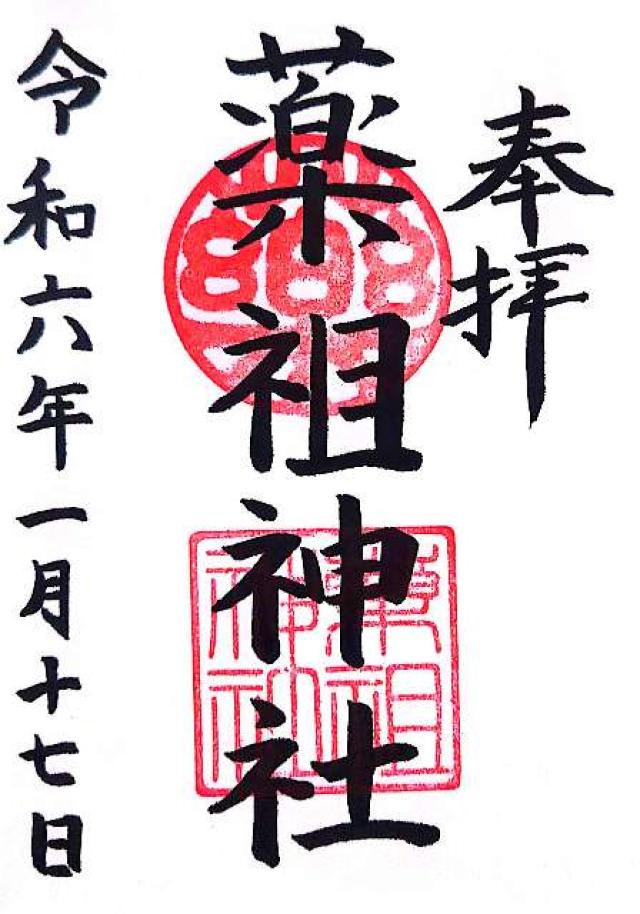 奉拝
薬祖神社
薬祖神社
令和六年一月十七日